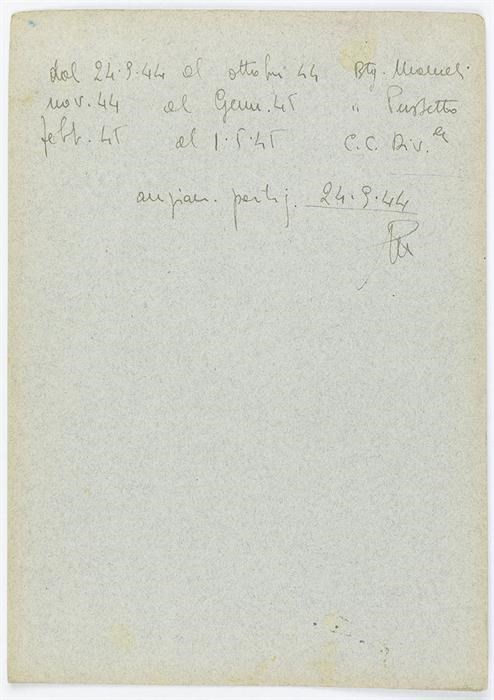 dal 24.9.44 al ottobre 44 Btg. Mameli
nov. 44 al Genn. 45 " Pussetto
febb. 45 al 1.5.45 C.C. Div.le
anzian. partig. 24.9.44